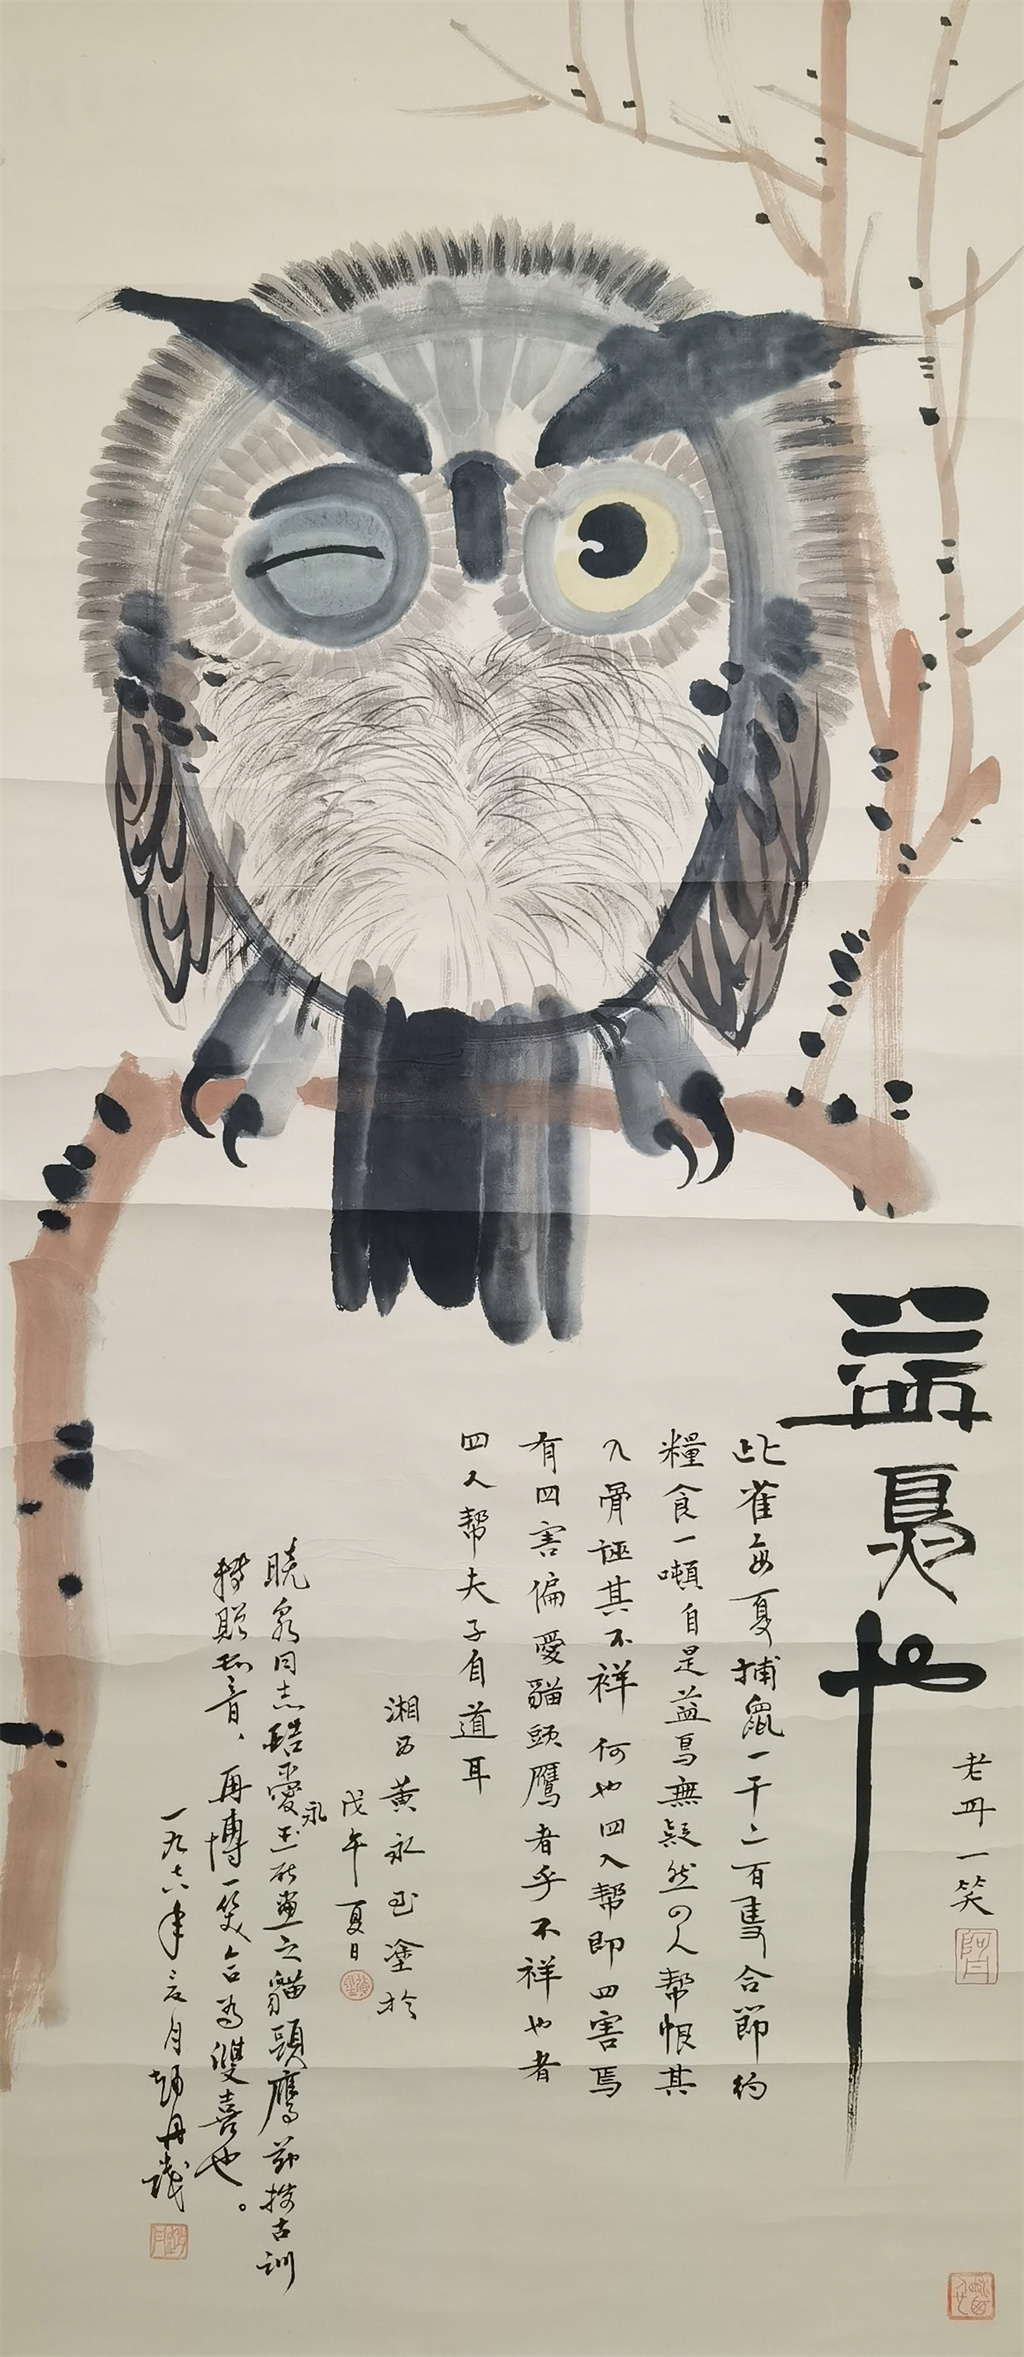 益鳥也
老丹一笑
此雀每夏捕鼠一千二百隻合節約
糧食一噸自是益鳥無疑然四人幫恨其
入骨誣其不祥何也四人帮即四害焉
有四害偏愛貓頭鷹者乎不祥也者
四人帮夫子自道耳
湘西黄永玉塗於
戊午夏日
曉泉同志酷愛永玉所畫之貓頭鷹茲按古訓
轉贈知音、再博一笑合為雙喜也。
一九七八年 月趙丹識